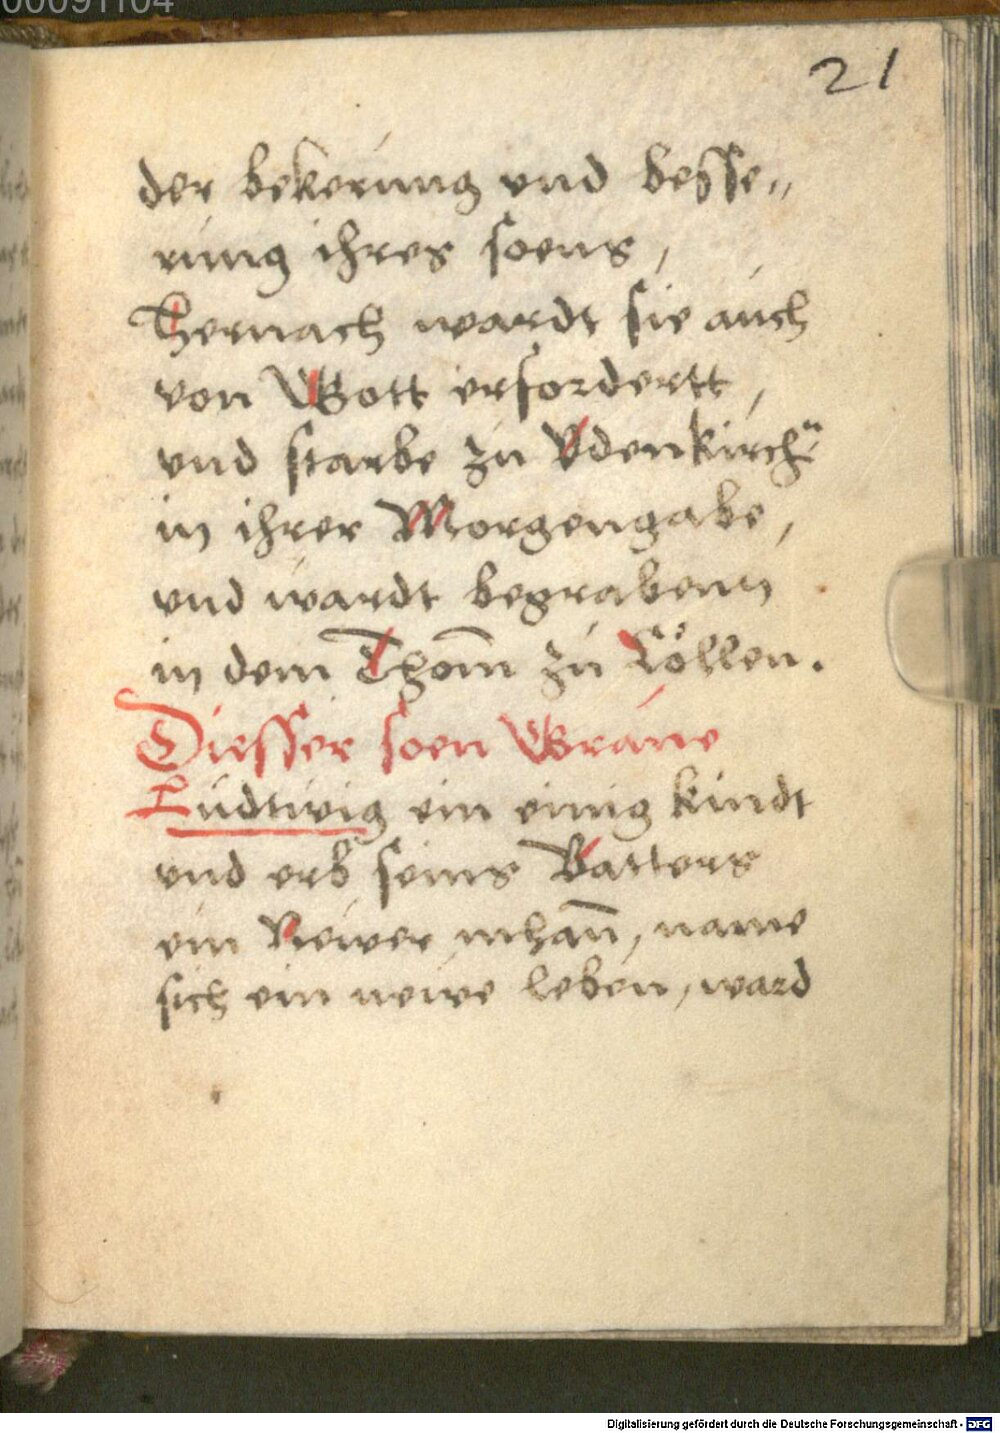 00091104
21
der bekerung vnd besse„
rung ihres soens,
Hernach wardt sie auch
von Gott erfordertt,
vnd starbe zu Vdenkirch
in ihrer Morgengabe,
vnd wardt begrabenn
in dem Thom̄ zu Cöllen.
Diesser soen Graue
Ludtwig ein einig kindt
vnd erb seins Vatters
ein Riewer mhan̄, name
sich ein newe leben, ward
Digitalisierung gefördert durch die Deutsche Forschungsgemeinschaft - DFG